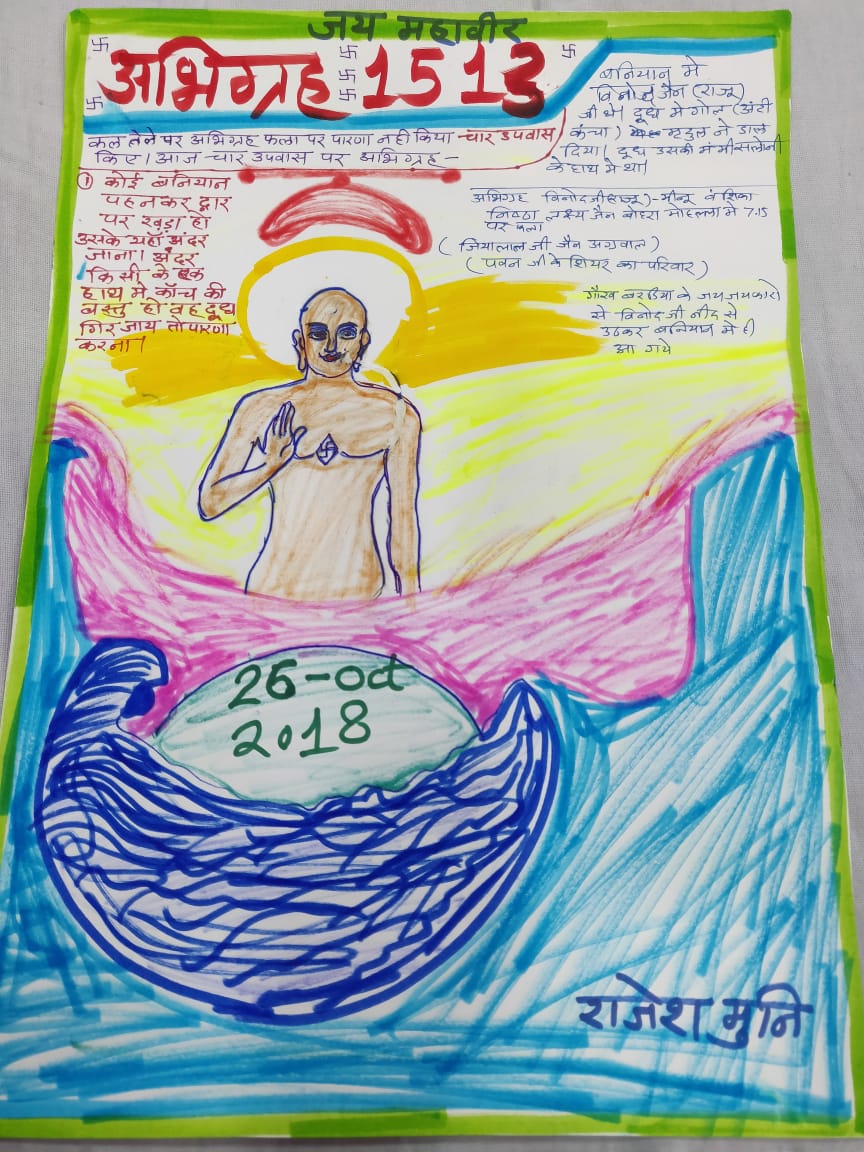 जय महावीर
अभिग्रह 1513
कल तेले पर अभिग्रह फला पर पारणा नही किया चार उपवास
किए। आज चार उपवास पर अभिग्रह-
① कोई बनियान
पहनकर द्वार
पर खड़ा हो
उसके यहाँ अंदर
जाना। अंदर
किसी के एक
हाथ मे काँच की
वस्तु हो वह दूध
गिर जाय तो पारणा
करना।
बनियान मे
विनोद जैन (राजू)
जी थे। दूध मे गोल (अंटी
कंचा) मृदुल ने डाल
दिया। दूध उसकी मम्मी सलोनी
के हाथ मे था।
अभिग्रह विनोदजी (राजू)-मीनू वंशिका
निष्ठा लक्ष्य जैन बोहरा मोहल्ला मे 7.15
पर फला
(जियालाल जी जैन अग्रवाल)
(पवन जी के शियर का परिवार)
गौरव बरडिया के जय जयकारो
से विनोद जी नींद से
उठकर बनियान मे ही
आ गये
26-oct
2018
राजेश मुनि